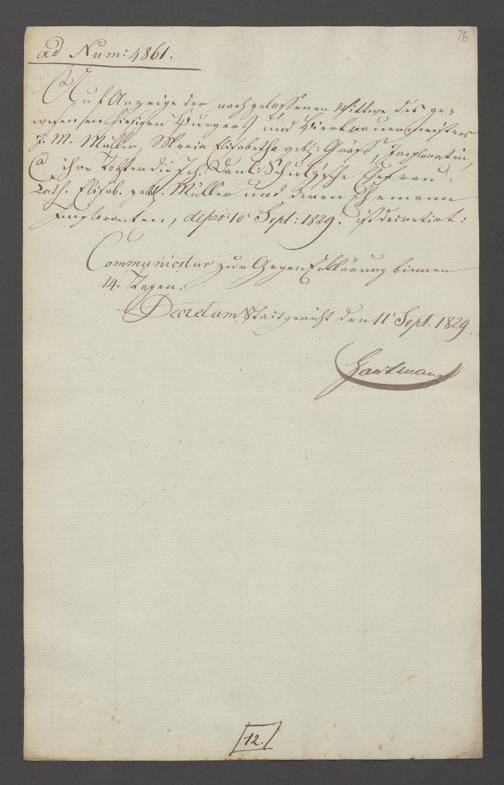 76
ad Num: 4861.
Auf Anzeige der nachgelassenen Wittwe des ge-
wesenen hiesigen Burgers und Bierbrauermeisters
J. M. Müller, Maria Elisabetha geb: Gräff, Implorantin,
Ca ihre Tochter die Joh. Daniel Schulzische Ehefrau:
Cath. Elisab. geb. Müller und deren Ehemann
Imploraten, depos: 10 Sept: 1829. ist decretirt:
Communicetur zur GegenErklärung binnen
14. Tagen.
Decretum Stadtgericht den 11 Sept. 1829.
Hartmann
12.